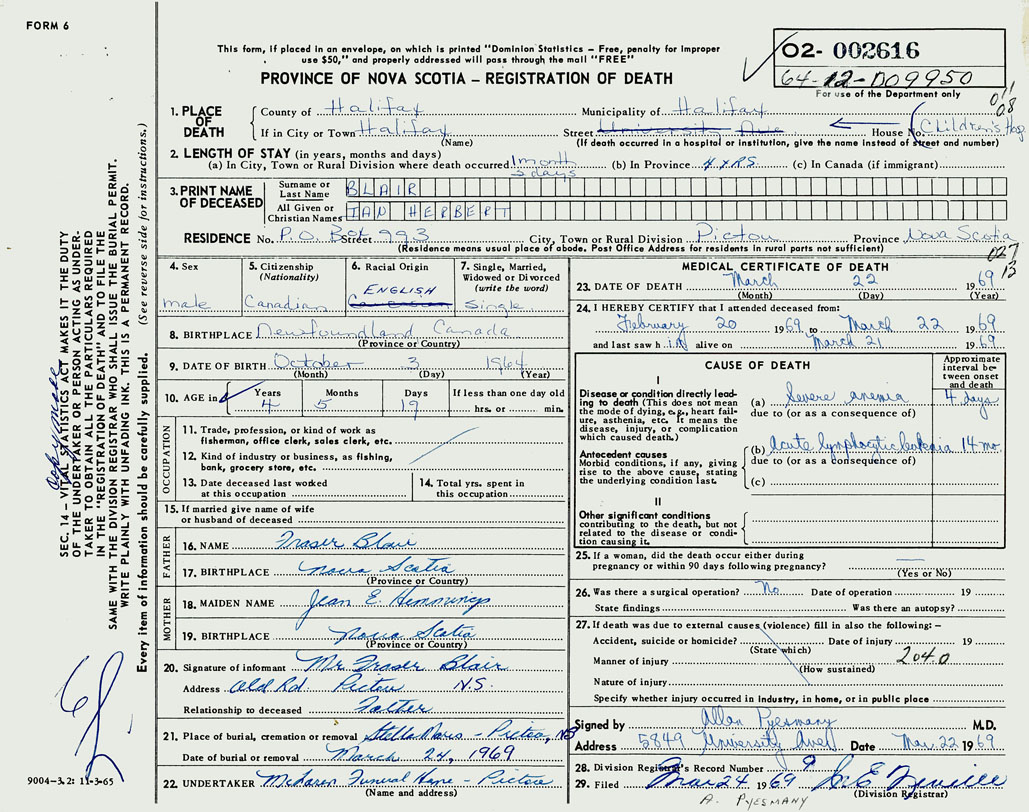 FORM 6
This form, if placed in an envelope, on which is printed "Dominion Statistics – Free, penalty for improper
use $50," and properly addressed will pass through the mail "FREE"
PROVINCE OF NOVA SCOTIA – REGISTRATION OF DEATH
02- 002616
64-12-D09950
For use of the Department only
011
008
1. PLACE OF DEATH
County of Halifax Municipality of Halifax
If in City or Town Halifax Street University Ave House No. Children's Hosp.
(Name) (If death occurred in a hospital or institution, give the name instead of street and number)
2. LENGTH OF STAY (in years, months and days)
(a) In City, Town or Rural Division where death occurred 1 month 2 days (b) In Province 4 YRS (c) In Canada (if immigrant)
3. PRINT NAME OF DECEASED
Surname or Last Name BLAIR
All Given or Christian Names IAN HERBERT
RESIDENCE No. P.O. Box Street 993 City, Town or Rural Division Pictou Province Nova Scotia
(Residence means usual place of abode. Post Office Address for residents in rural parts not sufficient)
027
13
4. Sex
male
5. Citizenship (Nationality)
Canadian
6. Racial Origin
ENGLISH
7. Single, Married, Widowed or Divorced (write the word)
single
8. BIRTHPLACE Newfoundland Canada
(Province or Country)
9. DATE OF BIRTH October 3 1964
(Month) (Day) (Year)
10. AGE in Years 4 Months 5 Days 19 If less than one day old hrs. or min.
OCCUPATION
11. Trade, profession, or kind of work as
fisherman, office clerk, sales clerk, etc.
12. Kind of industry or business, as fishing,
bank, grocery store, etc.
13. Date deceased last worked
at this occupation
14. Total yrs. spent in
this occupation
15. If married give name of wife
or husband of deceased
FATHER
16. NAME Fraser Blair
17. BIRTHPLACE Nova Scotia
(Province or Country)
MOTHER
18. MAIDEN NAME Jean E Hemmings
19. BIRTHPLACE Nova Scotia
(Province or Country)
20. Signature of informant Mr. Fraser Blair
Address Old Rd Pictou N.S.
Relationship to deceased Father
21. Place of burial, cremation or removal Stella Maris - Pictou, NS
Date of burial or removal March 24, 1969
22. UNDERTAKER Funeral Home - Pictou
(Name and address)
MEDICAL CERTIFICATE OF DEATH
23. DATE OF DEATH March 22 1969
(Month) (Day) (Year)
24. I HEREBY CERTIFY that I attended deceased from:
February 20 1969 to March 22 1969
and last saw him alive on March 21 1969
CAUSE OF DEATH
Approximate interval between onset and death
I
Disease or condition directly leading to death (This does not
mean the mode of dying, e.g., heart failure,
asthenia, etc. It means the
disease, injury, or complication
which caused death.)
(a) Severe anemia 4 days
due to (or as a consequence of)
Antecedent causes
Morbid conditions, if any, giving
rise to the above cause, stating
the underlying condition last.
(b) Acute lymphocytic leukemia 14 mo.
due to (or as a consequence of)
(c)
II
Other significant conditions
contributing to the death, but not
related to the disease or condition
causing it.
25. If a woman, did the death occur either during
pregnancy or within 90 days following pregnancy?
(Yes or No)
26. Was there a surgical operation? No Date of operation 19
State findings Was there an autopsy?
27. If death was due to external causes (violence) fill in also the following: –
Accident, suicide or homicide? Date of injury 19
(State which)
Manner of injury 2040
(How sustained)
Nature of injury
Specify whether injury occurred in Industry, in home, or in public place
Signed by Allan Pyesmany M.D.
Address 5849 University Ave. Date Mar. 22 1969
28. Division Registrar's Record Number 9
29. Filed Mar 24 1969
(Division Registrar)
A. PYESMANY
SEC. 14 – VITAL STATISTICS ACT MAKES IT THE DUTY
OF THE UNDERTAKER OR PERSON ACTING AS UNDER-
TAKER TO OBTAIN ALL THE PARTICULARS REQUIRED
IN THE "REGISTRATION OF DEATH" AND TO FILE THE
SAME WITH THE DIVISION REGISTRAR WHO SHALL ISSUE THE BURIAL PERMIT.
WRITE PLAINLY WITH UNFADING INK. THIS IS A PERMANENT RECORD.
Every item of information should be carefully supplied. (See reverse side for instructions.)
9004-3.2: 11-3-65